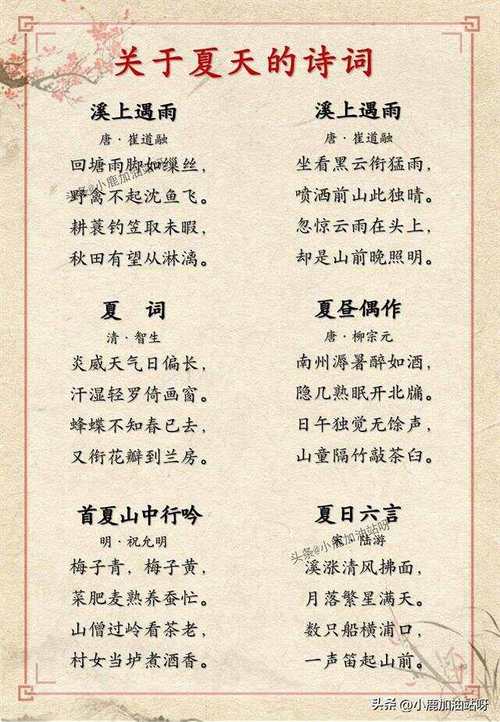 关于夏天的诗词
溪上遇雨
唐·崔道融
回塘雨脚如缫丝，
野禽不起沈鱼飞。
耕蓑钓笠取未暇，
秋田有望从淋漓。
溪上遇雨
唐·崔道融
坐看黑云衔猛雨，
喷洒前山此独晴。
忽惊云雨在头上，
却是山前晚照明。
夏 词
清·智生
炎威天气日偏长，
汗湿轻罗倚画窗。
蜂蝶不知春已去，
又衔花瓣到兰房。
夏昼偶作
唐·柳宗元
南州溽暑醉如酒，
隐几熟眠开北牖。
日午独觉无馀声，
山童隔竹敲茶臼。
首夏山中行吟
明·祝允明
梅子青，梅子黄，
菜肥麦熟养蚕忙。
山僧过岭看茶老，
村女当垆煮酒香。
夏日六言
宋·陆游
溪涨清风拂面，
月落繁星满天。
数只船横浦口，
一声笛起山前。
头条@小鹿加油站呀
头条@小鹿加油站呀
头条 @小鹿加油站呀